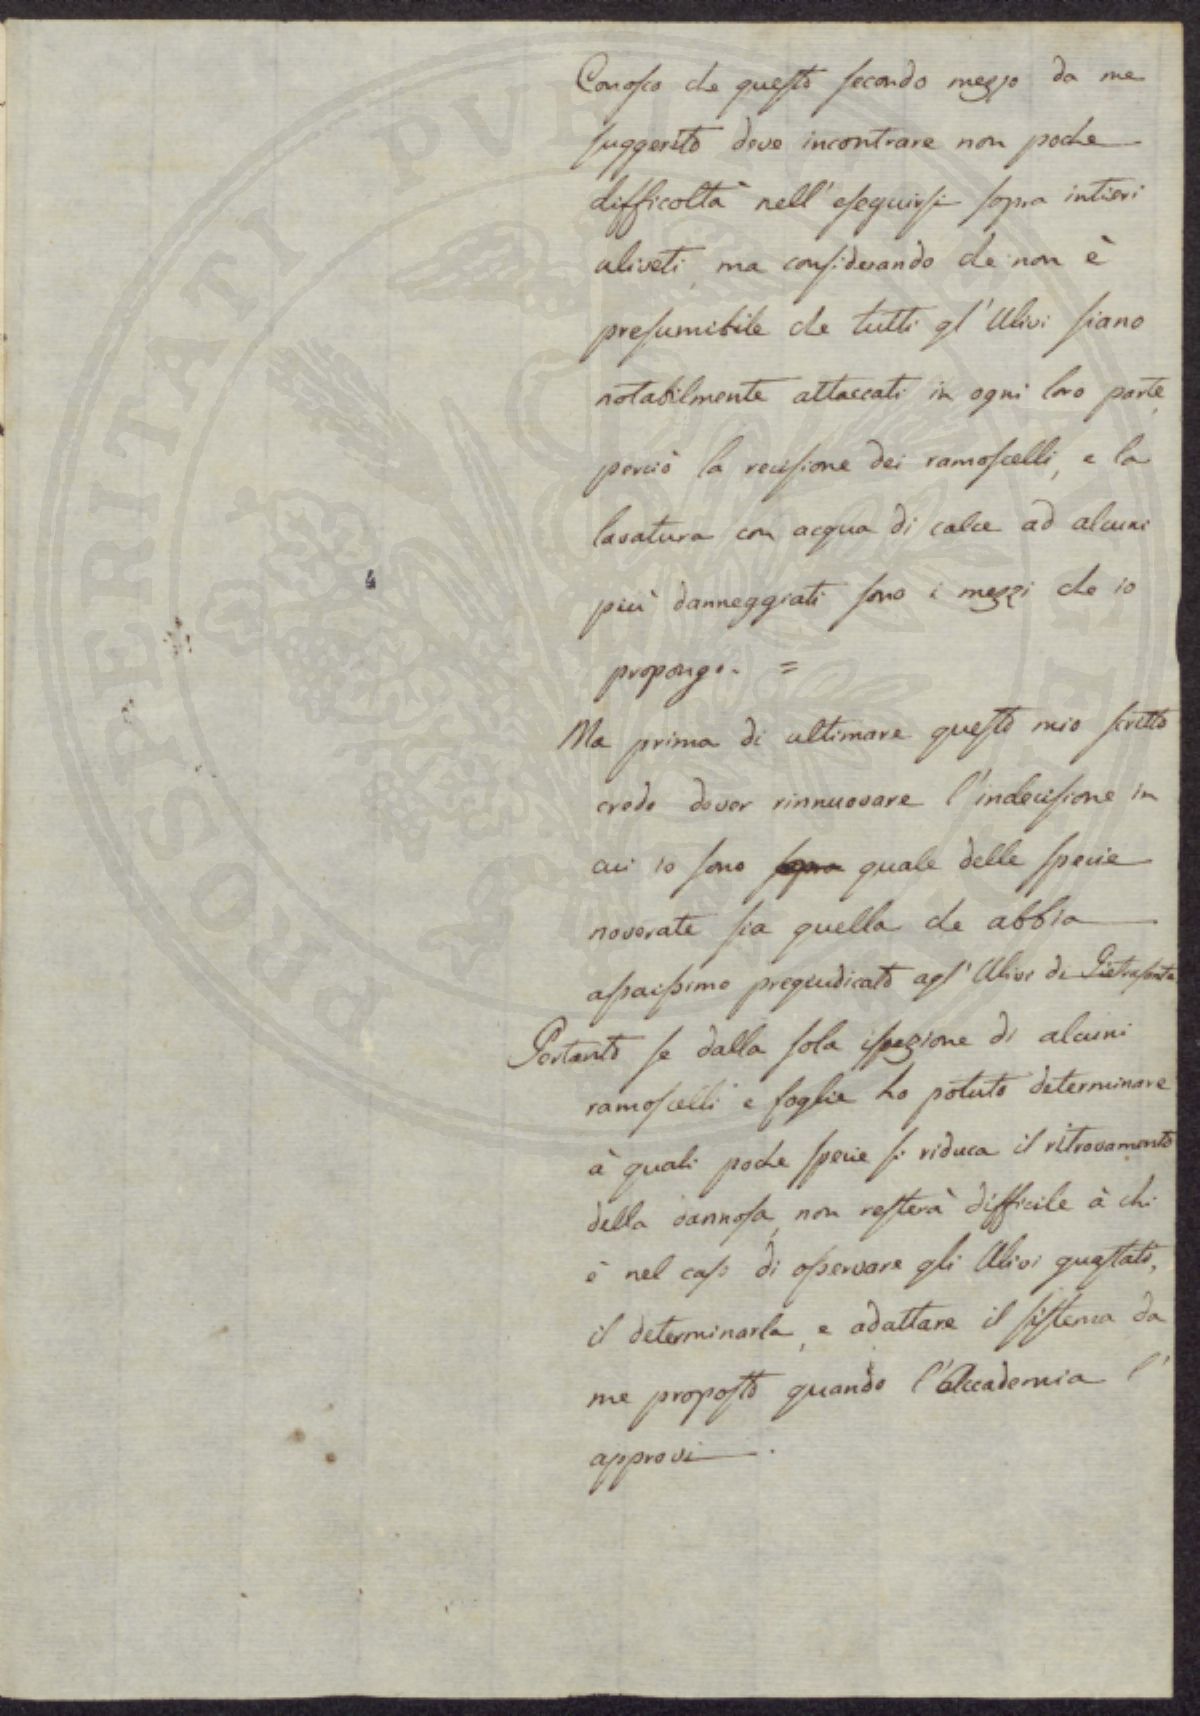 Conosco che questo secondo mezzo da me
suggerito deve incontrare non poche
difficoltà nell'eseguirsi sopra intieri
uliveti, ma considerando che non è
presumibile che tutti gl'Ulivi siano
notabilmente attaccati in ogni loro parte,
perciò la recisione dei ramoscelli, e la
lavatura con acqua di calce ad alcuni
più danneggiati sono i mezzi che io
propongo. =
Ma prima di ultimare questo mio scritto
credo dover rinnuovare l'indecisione in
cui io sono sopra quale delle specie
noverate sia quella che abbia
assaissimo pregiudicato agl'Ulivi di Pietrasanta
Pertanto se dalla sola ispezione di alcuni
ramoscelli e foglie ho potuto determinare
à quali poche specie si riduca il ritrovamento
della dannosa, non resterà difficile à chi
è nel caso di osservare gli Ulivi guastati,
il determinarla, e adattare il sistema da
me proposto quando l'Accademia l'
approvi.
PROSPERITATI PVBLICAE